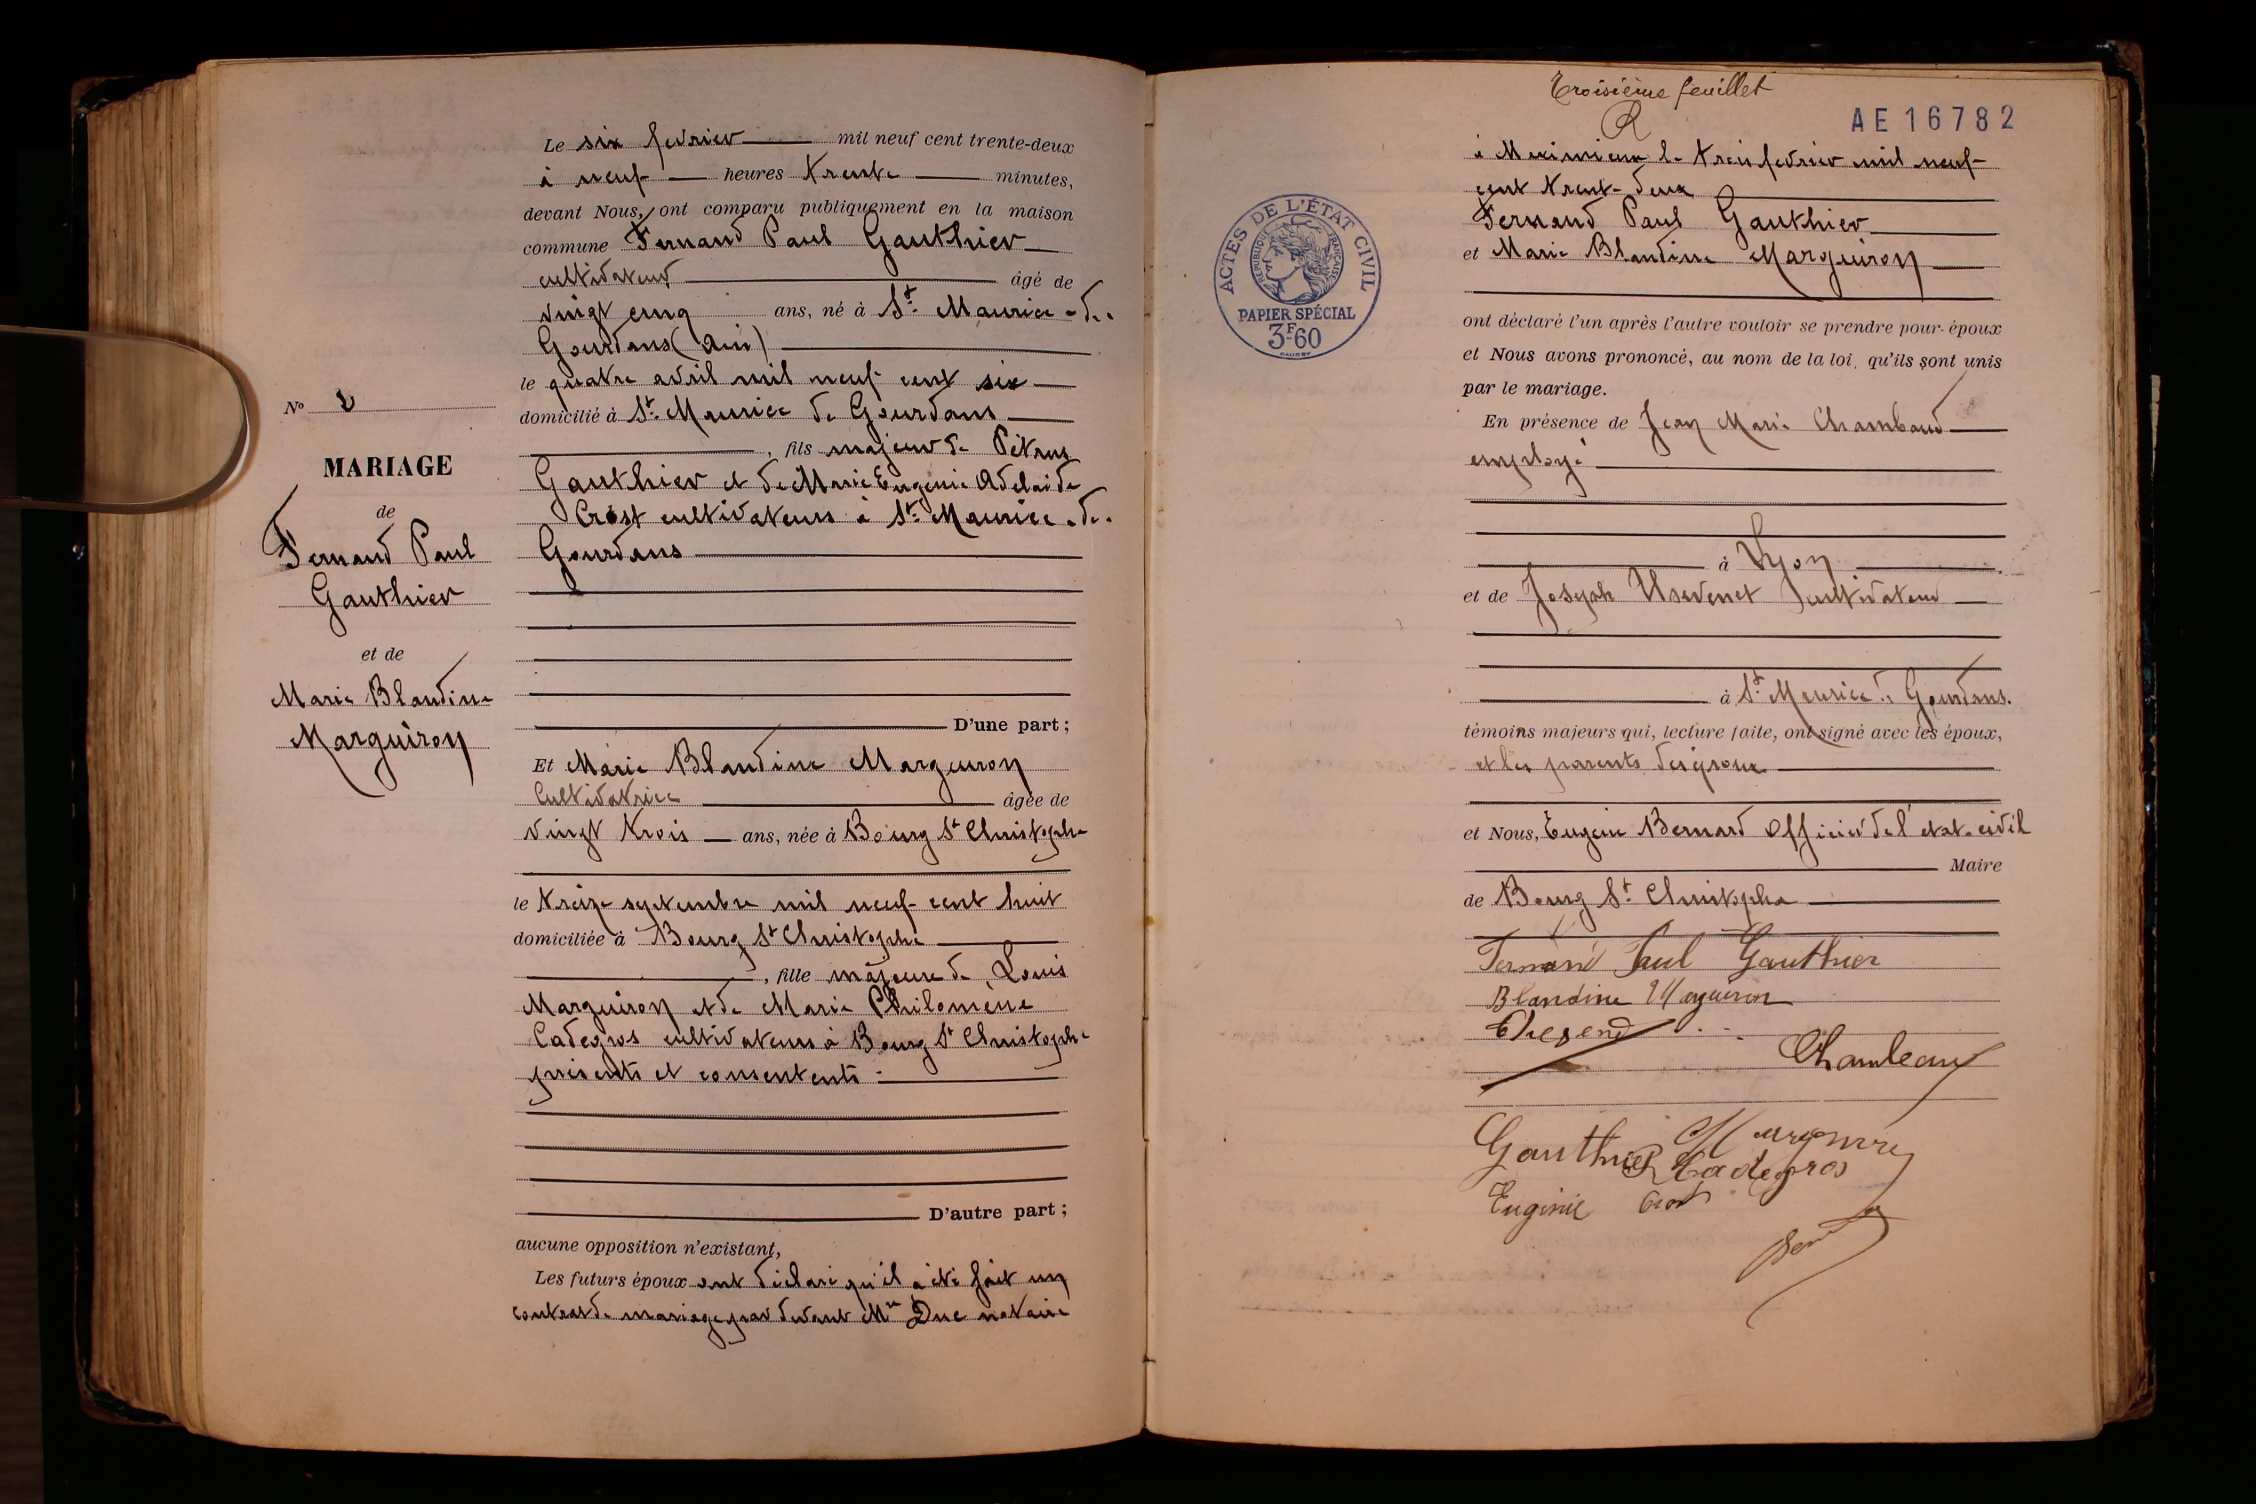 Le six fevrier mil neuf cent trente-deux
à neuf heures trente minutes,
devant Nous, ont comparu publiquement en la maison
commune Fernand Paul Gauthier
cultivateur âgé de
vingt cinq ans, né à St Maurice-de-
Gourdans (Ain)
le quatre avril mil neuf cent six
domicilié à St Maurice de Gourdans
, fils majeur de Pétrus
Gauthier et de Marie Eugenie Adelaide
Crost cultivateurs à St Maurice-de-
Gourdans
D'une part ;
Et Marie Blandine Marguiron
Cultivatrice âgée de
vingt trois ans, née à Bourg St Christophe
le treize septembre mil neuf cent huit
domiciliée à Bourg St Christophe
, fille majeure de Louis
Marguiron et de Marie Philomène
Cadegros cultivateurs à Bourg St Christophe
présents et consentents
D'autre part ;
aucune opposition n'existant,
Les futurs époux ont déclaré qu'il a été fait un
contrat de mariage par devant Me Duc notaire
No 2
MARIAGE
de
Fernand Paul
Gauthier
et de
Marie Blandine
Marguiron
Troisième feuillet
R
AE 16782
à Meximieux le trois fevrier mil neuf
cent trente-deux
Fernand Paul Gauthier
et Marie Blandine Marguiron
ont déclaré l'un après l'autre vouloir se prendre pour époux
et Nous avons prononcé, au nom de la loi, qu'ils sont unis
par le mariage.
En présence de Jean Marie Chambaud
employé
à Lyon
et de Joseph cultivateur
à St Maurice de Gourdans.
témoins majeurs qui, lecture faite, ont signé avec les époux,
et les parents des époux
et Nous, Eugène Bernard Officier de l'état-civil
Maire
de Bourg St Christophe
Fernand Paul Gauthier
Blandine Marguiron
Gauthier
Cadegros
Eugénie Crost
ACTES DE L'ÉTAT CIVIL
RÉPUBLIQUE FRANÇAISE
PAPIER SPÉCIAL
3F60